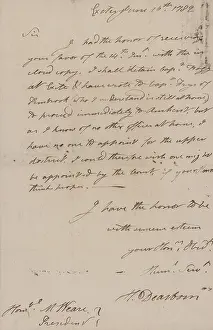 Exeter June 10th 1782
Sir
I had the honor of receiving
your favor of the 10th Inst. with the in
closed copy, I shall detain Capt.
at Exeter & have wrote to Capt. Frye of
Pembrook who I understand is still at home,
to proceed immediately to Amherst, but
as I know of no other officer at home, I
have no one to appoint for the upper
district, I could therefore wish one might
be appointed by the Comte. if you
think proper.
I have the honor to be
with much esteem
your Honrs. Obedt.
Humle. Servt.
H. Dearborn
Honble. M. Weare
President